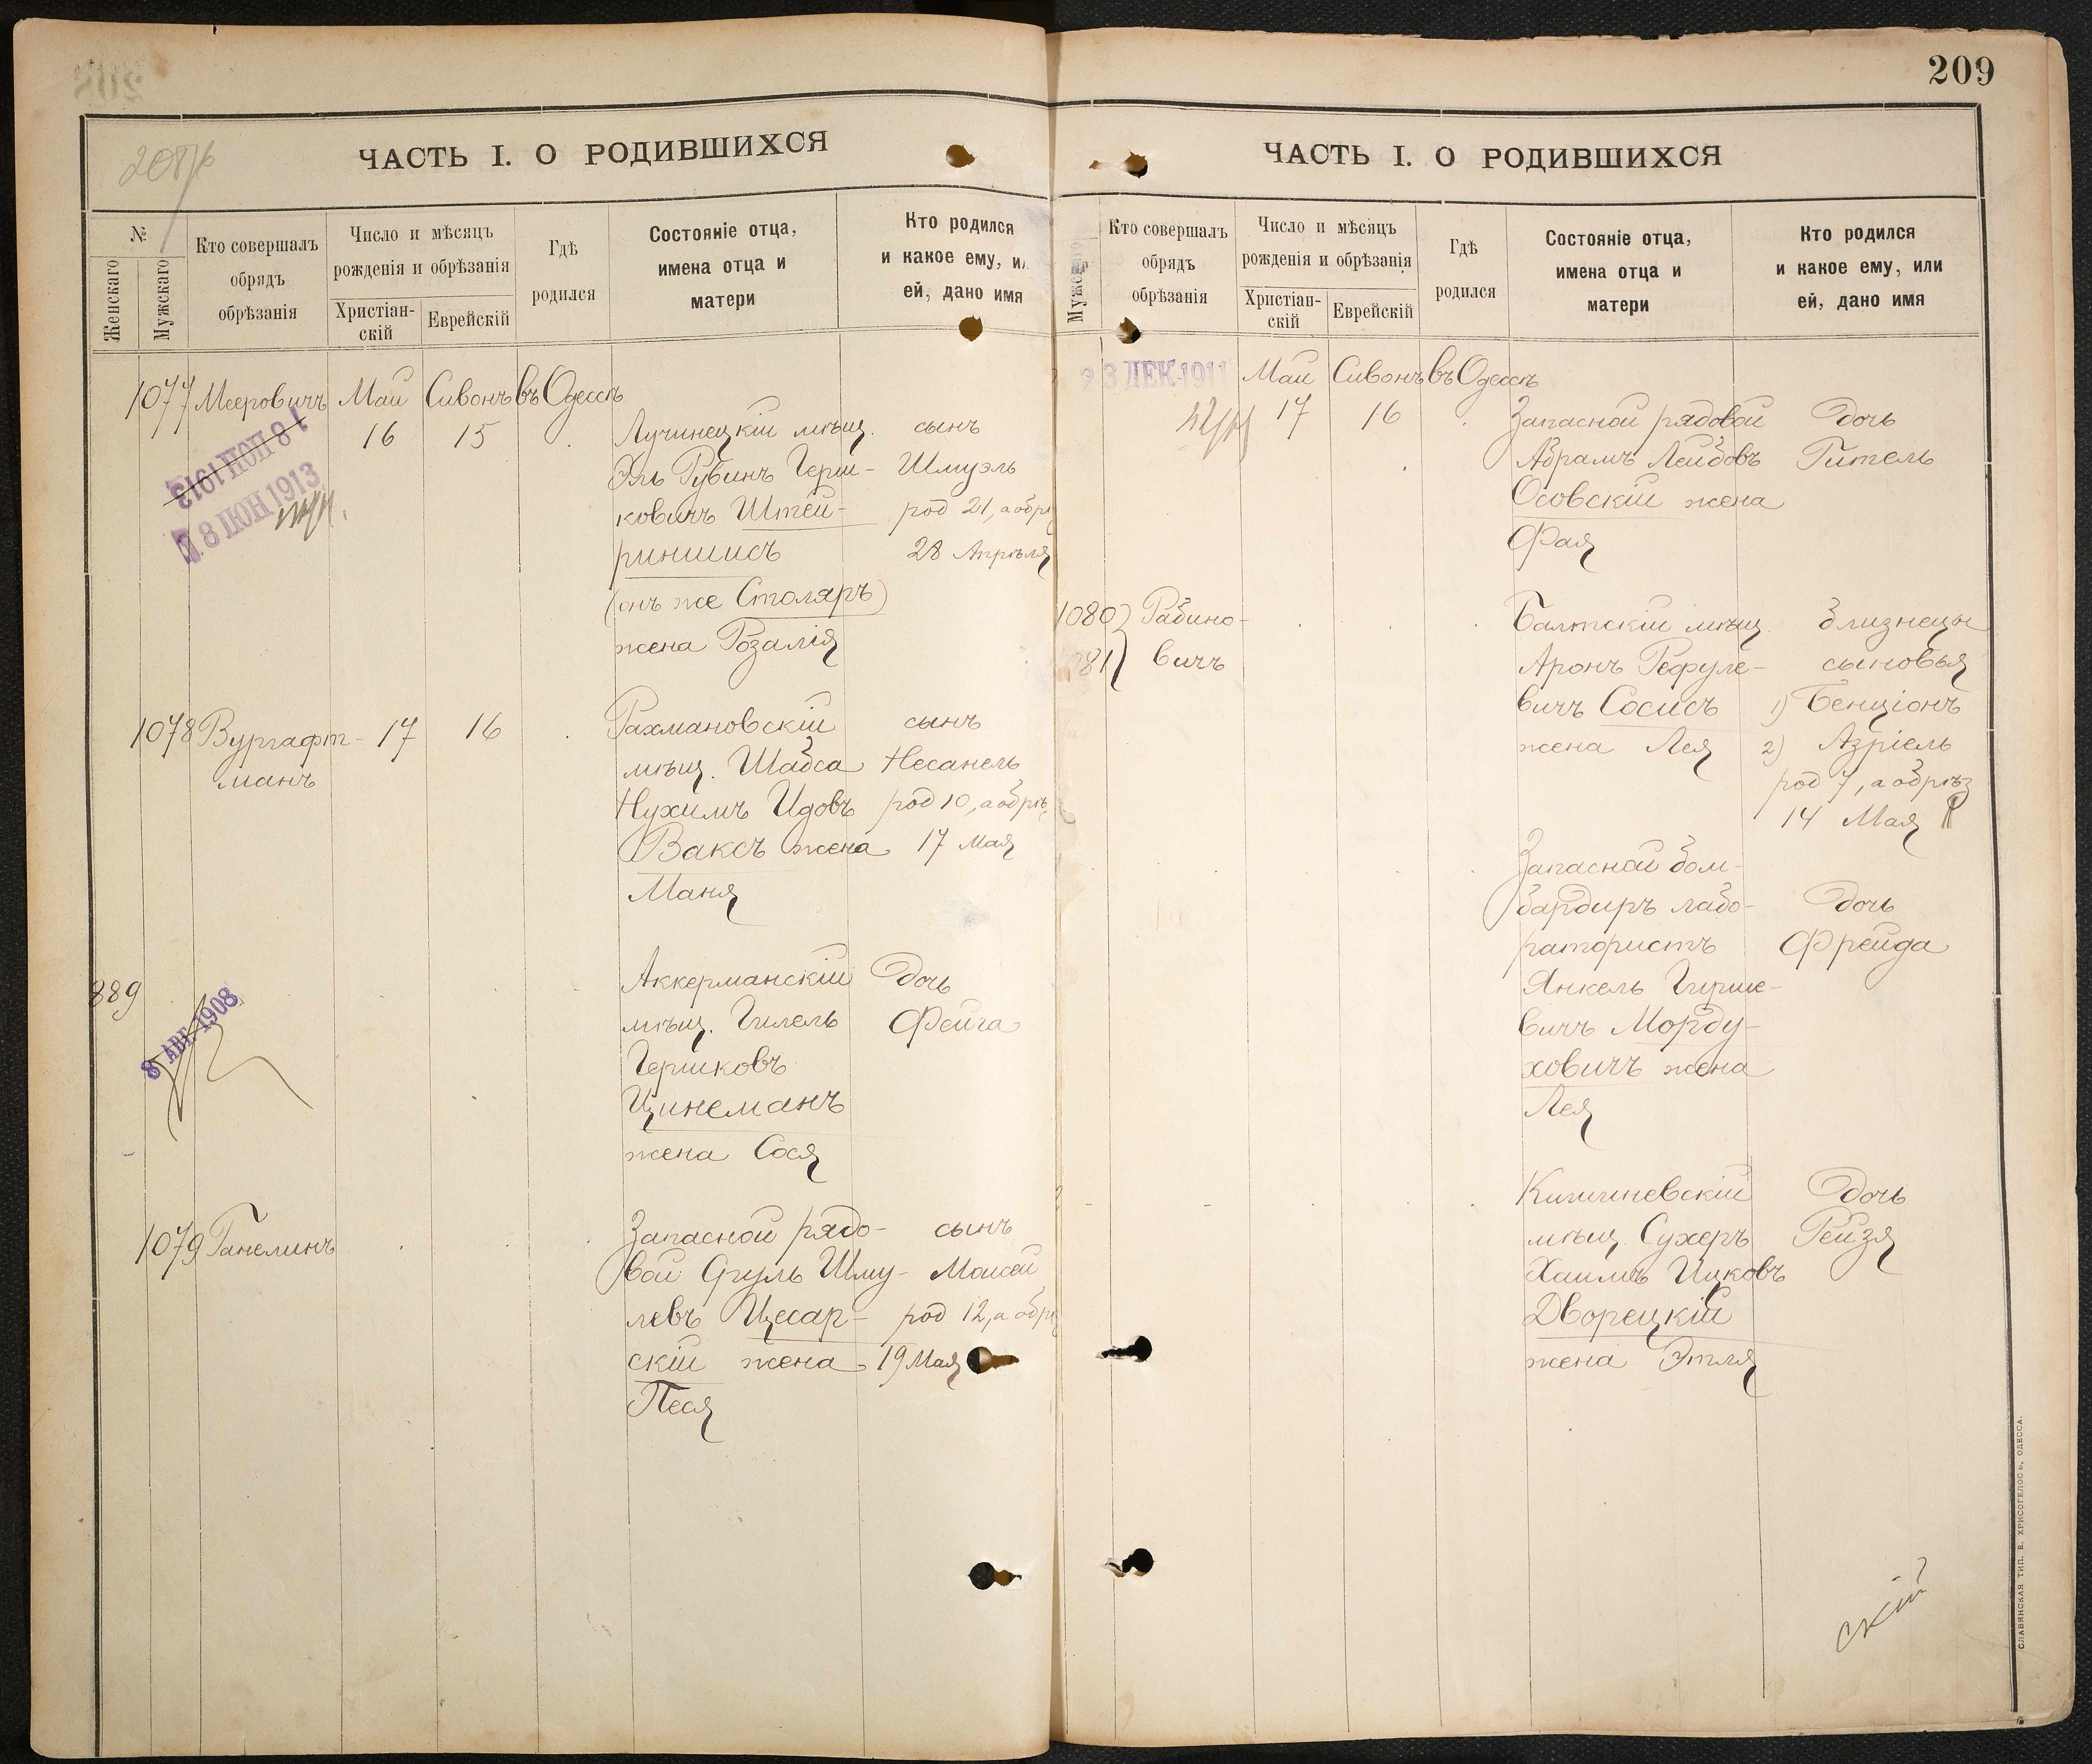 208
ЧАСТЬ I. О РОДИВШИХСЯ
№
Женскаго
Мужскаго
Кто совершалъ
обрядъ
обрѣзанія
Число и мѣсяцъ
рожденія и обрѣзанія
Христіан-
скій
Еврейскій
Гдѣ
родился
Состояніе отца,
имена отца и
матери
Кто родился
и какое ему, и
ей, дано имя
1077 Мееровичъ Май Сивонъ въ Одессѣ
16 15 Лучинецкій мѣщ. сынъ
Эль Рувинъ Герш- Шмуэль
ковичъ Штей- род 21, а обрѣ
риншисъ 28 Апрѣля
(онъ же Столяръ)
жена Розалія
18 ІЮН 1913
8 ІЮН 1913
1078 Вургафт- 17 16 Рахмановскій сынъ
манъ мѣщ. Шабса Несанель
Нухимъ Идовъ род 10, а обрѣ
Ваксъ жена 17 Мая
Маня
889 Аккерманскій дочь
8 АВГ. 1908
мѣщ. Гилель Фейга
Гершковъ
Цинеманъ
жена Сося
1079 Ганелинъ Запасной рядо- сынъ
вой Сруль Шму- Моисей
левъ Цесар- род 12, а обрѣ
скій жена 19 Мая
Песя
209
ЧАСТЬ I. О РОДИВШИХСЯ
Мужскаго
Кто совершалъ
обрядъ
обрѣзанія
Число и мѣсяцъ
рожденія и обрѣзанія
Христіан-
скій
Еврейскій
Гдѣ
родился
Состояніе отца,
имена отца и
матери
Кто родился
и какое ему, или
ей, дано имя
3 ДЕК. 1911
Май Сивонъ въ Одессѣ
17 16 Запасной рядовой дочь
Абрамъ Лейбовъ Гитель
Осовскій жена
Фая
1080) Рабино- Балтскій мѣщ. близнецы
1081) вичъ Аронъ Рефуле- сыновья
вичъ Сосисъ 1) Бенціонъ
жена Лея 2) Азріель
род 7, а обрѣз
14 Мая
Запасной бом-
бардиръ лабо- дочь
ратористъ Фрейда
Янкель Гирше-
вичъ Морду-
ховичъ жена
Лея
Кишиневскій дочь
мѣщ. Сухеръ Рейзя
Хаимъ Ицковъ
Дворецкій
жена Этля
скій
СЛАВЯНСКАЯ ТИП. Е. ХРИСОГЕЛОСЪ, ОДЕССА.